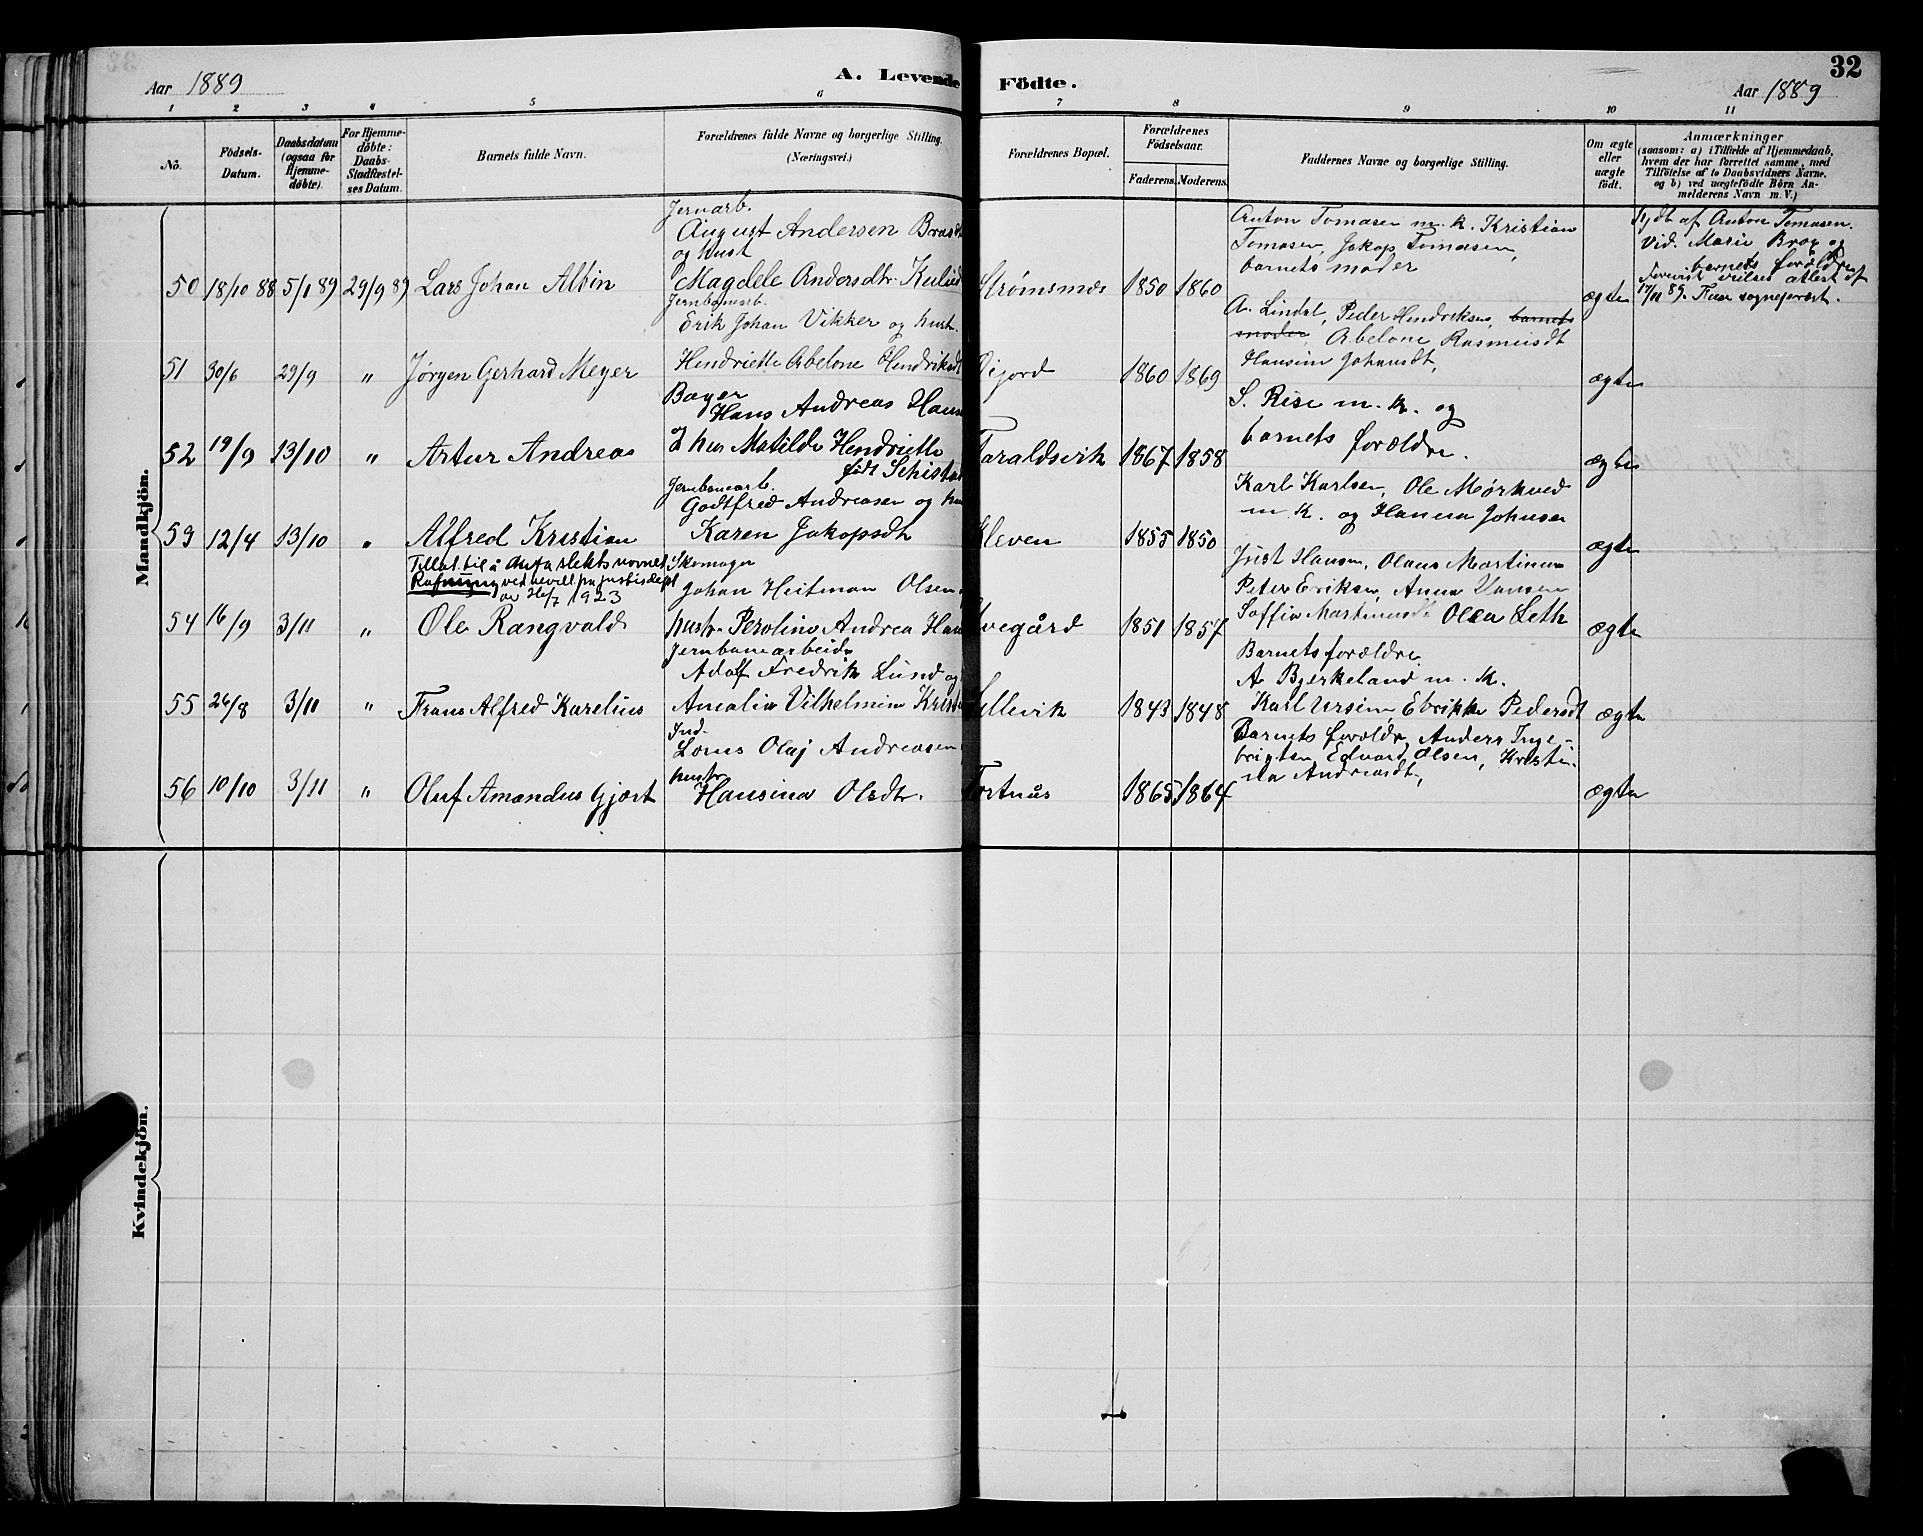 32
Aar 1889
A. Levende Födte.
Aar 1889
1 2 3 4 5 6 7 8 9 10 11
No.
Födsels-
Datum.
Daabsdatum
(ogsaa for
Hjemme-
döbte).
For Hjemme-
döbte:
Daabs-
Stadfæstel-
ses Datum.
Barnets fulde Navn.
Forældrenes fulde Navne og borgerlige Stilling.
(Næringsvei.)
Forældrenes Bopæl.
Forældrenes
Födselsaar.
Faderens. Moderens.
Faddernes Navne og borgerlige Stilling.
Om ægte
eller
uægte
födt.
Anmærkninger
(saasom: a) i Tilfælde af Hjemmedaab,
hvem der har forrettet samme, med
Tilföielse af to Daabsvidners Navne.
og b) ved uægtefödte Börn An-
melderens Navn m. V.)
Mandkjön.
50 18/10 88 5/1 89 29/9 89 Lars Johan Albin
Jernarb.
August Andersen
og hust
Magdele Andersdtr
Strømsnes 1850 1860
Anton Tomasen m. k. Kristian
Tomasen, Jakop Tomasen,
barnets moder
ægte
af Anton Tomasen.
Vid. Marie Brox og
barnets forældre
attest af
17/11 89. sogneprest.
51 30/6 29/9 " Jørgen Gerhard Meyer
Jernbanearb.
Erik Johan Vikker og hust.
Hendriette Abelone Hendriksdt
1860 1869
A. Lindal, Peder Hendriksen, barnets
moder, Abelone Rasmusdt
Hansine Johansdt,
ægte
52 19/9 13/10 " Artur Andreas
Bager
Hans Andreas
og hus Matilde Hendriette
født
Taraldsvik 1867 1858
S. Rise m. k. og
barnets forældre.
ægte
53 12/4 13/10 " Alfred Kristian
Jernbanearb.
Godtfred Andreasen og
Karen Jakopsdt
Kleven 1855 1850
Karl Karlsen, Ole Mørkved
m. k. og Hanna Johnsen
ægte
Tillat til å anta slektsnavnet
Rafnung ved bevill. fra justisdept
av 26/7 1923
54 16/9 3/11 " Ole Rangvald
Skomager
Johan Heitman Olsen
hustr. Peroline Andrea
1851 1857
Just Hansen, Olaus Martinus
Peter Eriksen, Anna Hansen
Soffie Olea Leth
ægte
55 26/8 3/11 " Frans Alfred Karelius
Jernbanearbeider
Adolf Fredrik Lund og
Amalie Vilhelmine
Lillevik 1843 1848
Barnets forældre
A. Bjerkeland m. k.
Karl Ursin, Ebrikke Pedersdt
ægte
56 10/10 3/11 " Oluf Amandus Gjært
Ind.
Lorns Olaj Andreasen
hustr
Hansina Olsdtr.
Tortnås 1865 1864
Barnets forældre, Anders Inge-
brigtsen Edvard Olsen, Kristi-
na Andreasdt,
ægte
Kvindekjön.